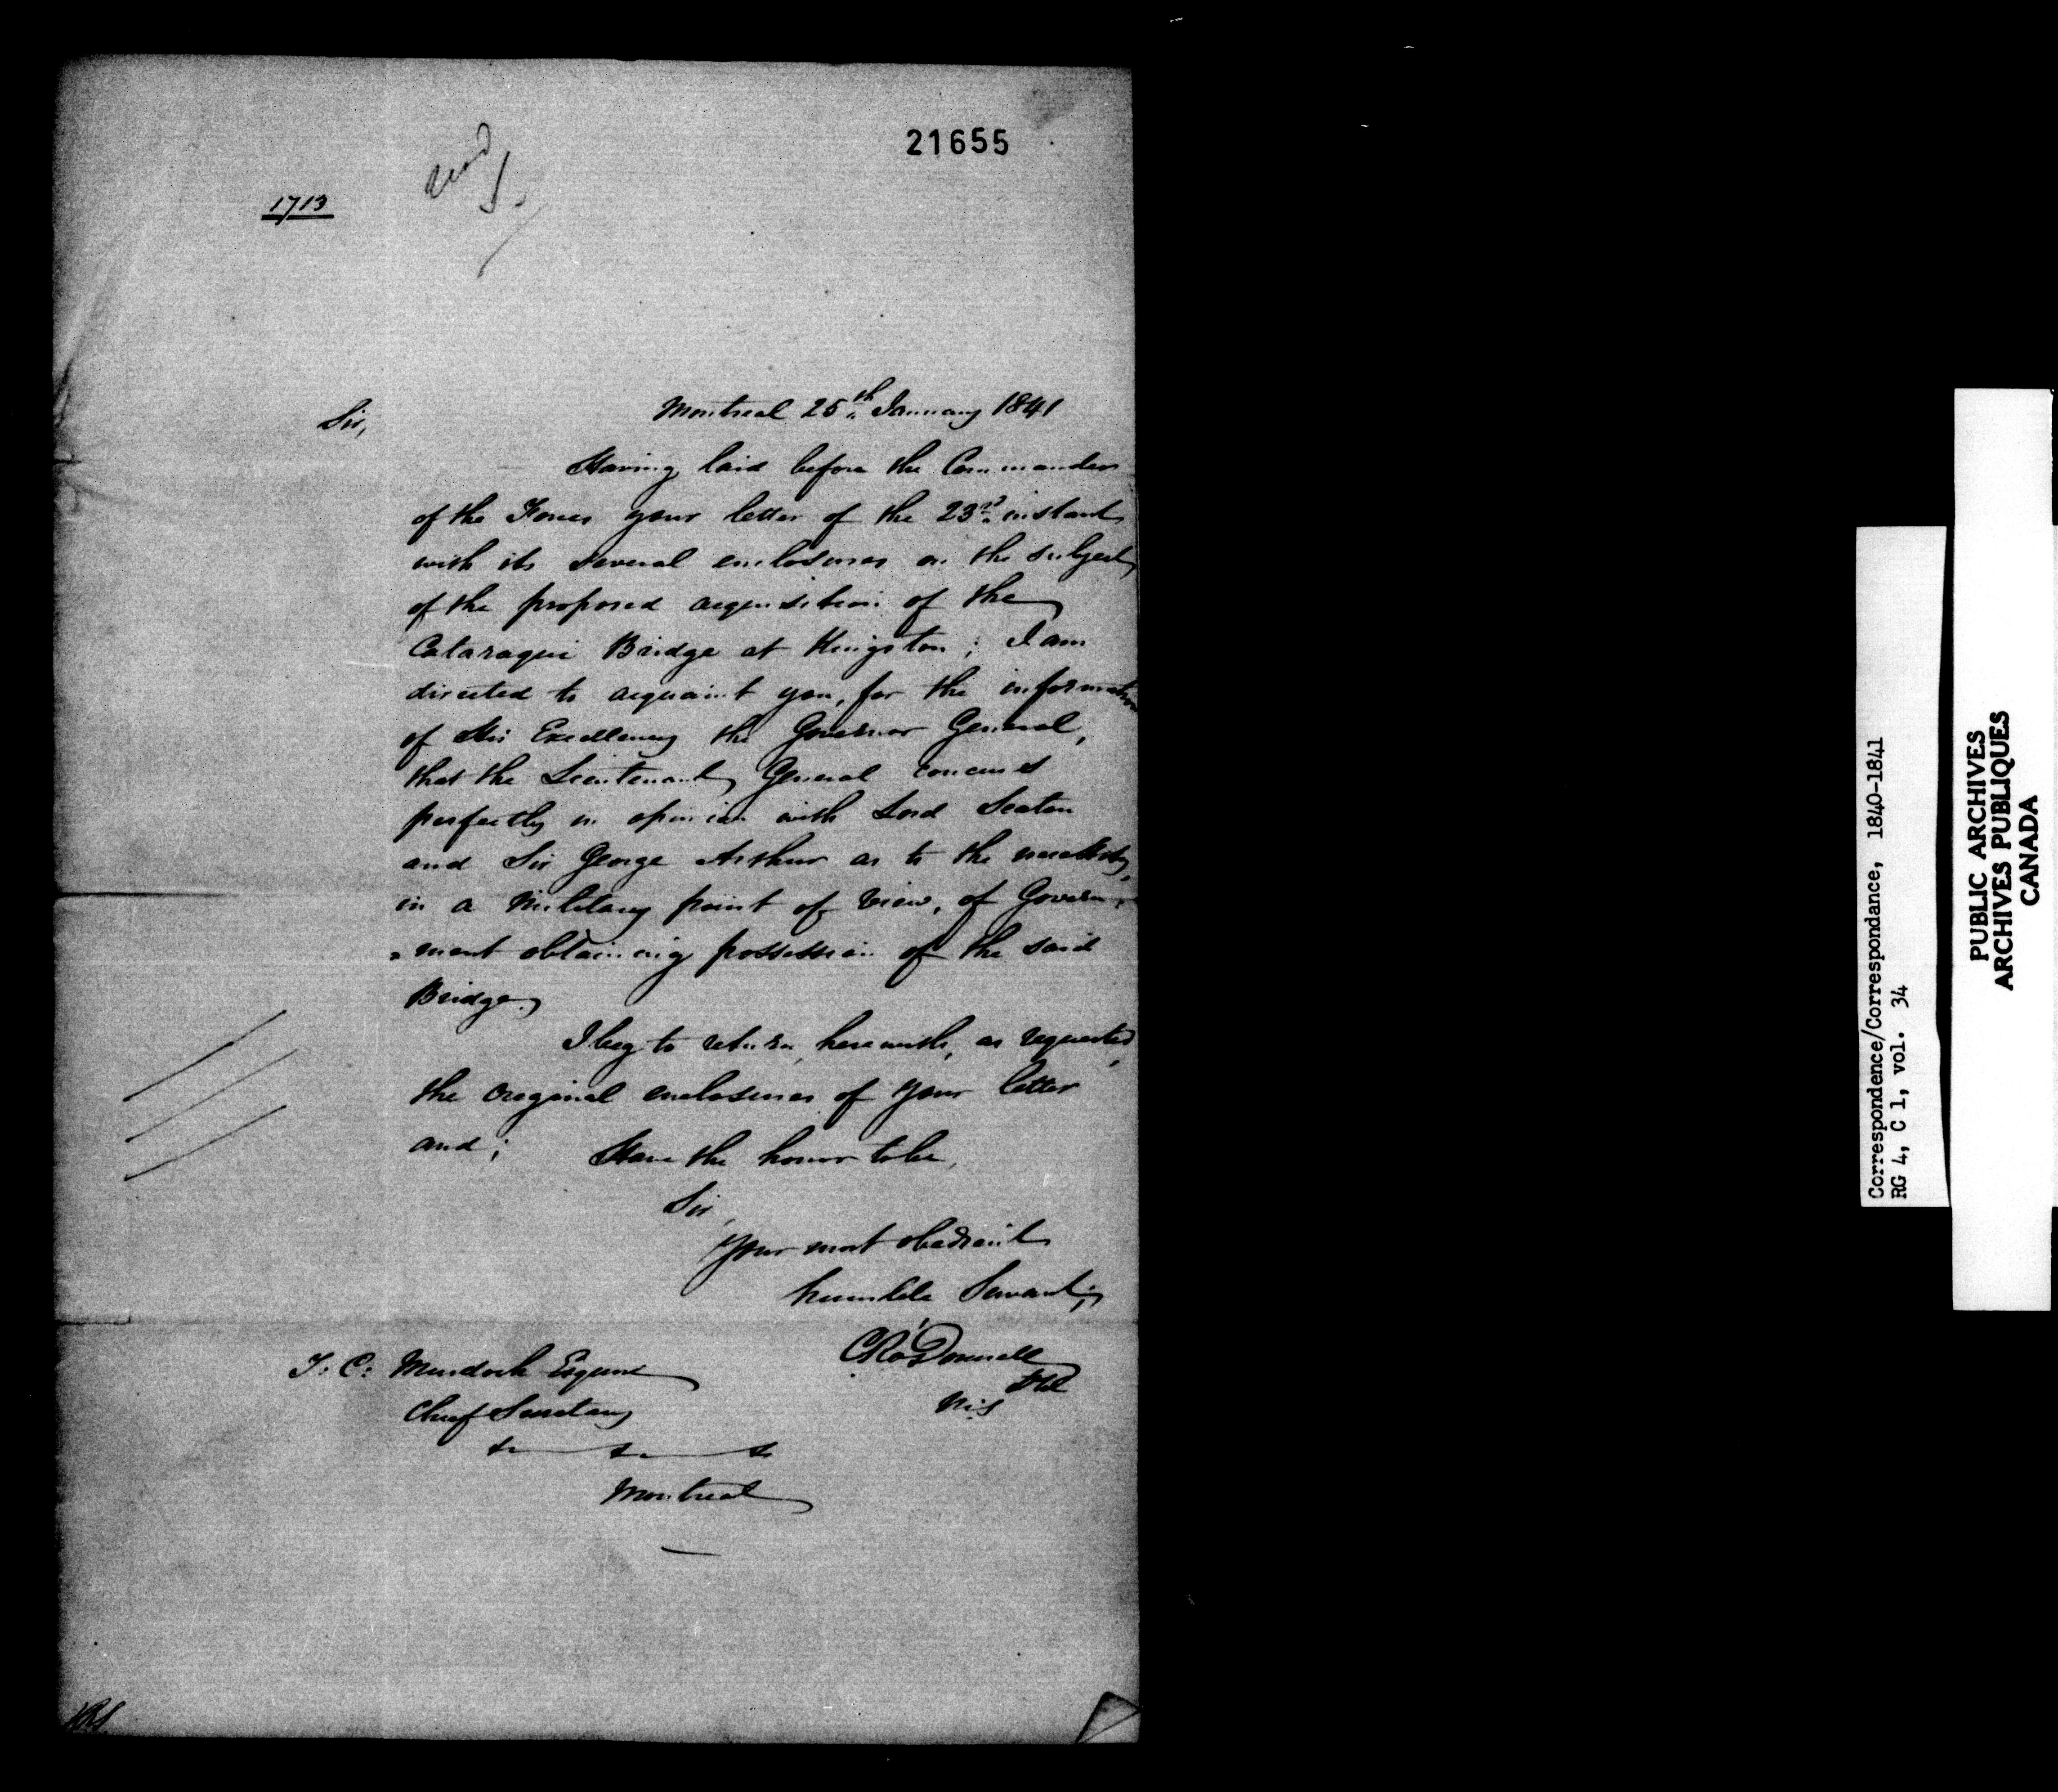 21655
1713
Montreal 25th January 1841
Sir,
Having laid before the Commander
of the Forces your letter of the 23rd instant
with its several enclosures on the subject
of the proposed acquisition of the
Cataraqui Bridge at Kingston; I am
directed to acquaint you, for the information
of His Excellency the Governor General,
that the Lieutenant General concurs
perfectly in opinion with Lord Seaton
and Sir George Arthur as to the necessity,
in a Military point of view, of Govern=
=ment obtaining possession of the said
Bridge.
I beg to return herewith, as requested,
the original enclosures of your letter
and; Have the honor to be,
Sir,
Your most obedient
humble Servant,
C R O'Donnell
T: C: Murdoch Esquire
Chief Secretary
&c &c &c
Montreal
Correspondence/Correspondance, 1840-1841
RG 4, C 1, vol. 34
PUBLIC ARCHIVES
ARCHIVES PUBLIQUES
CANADA